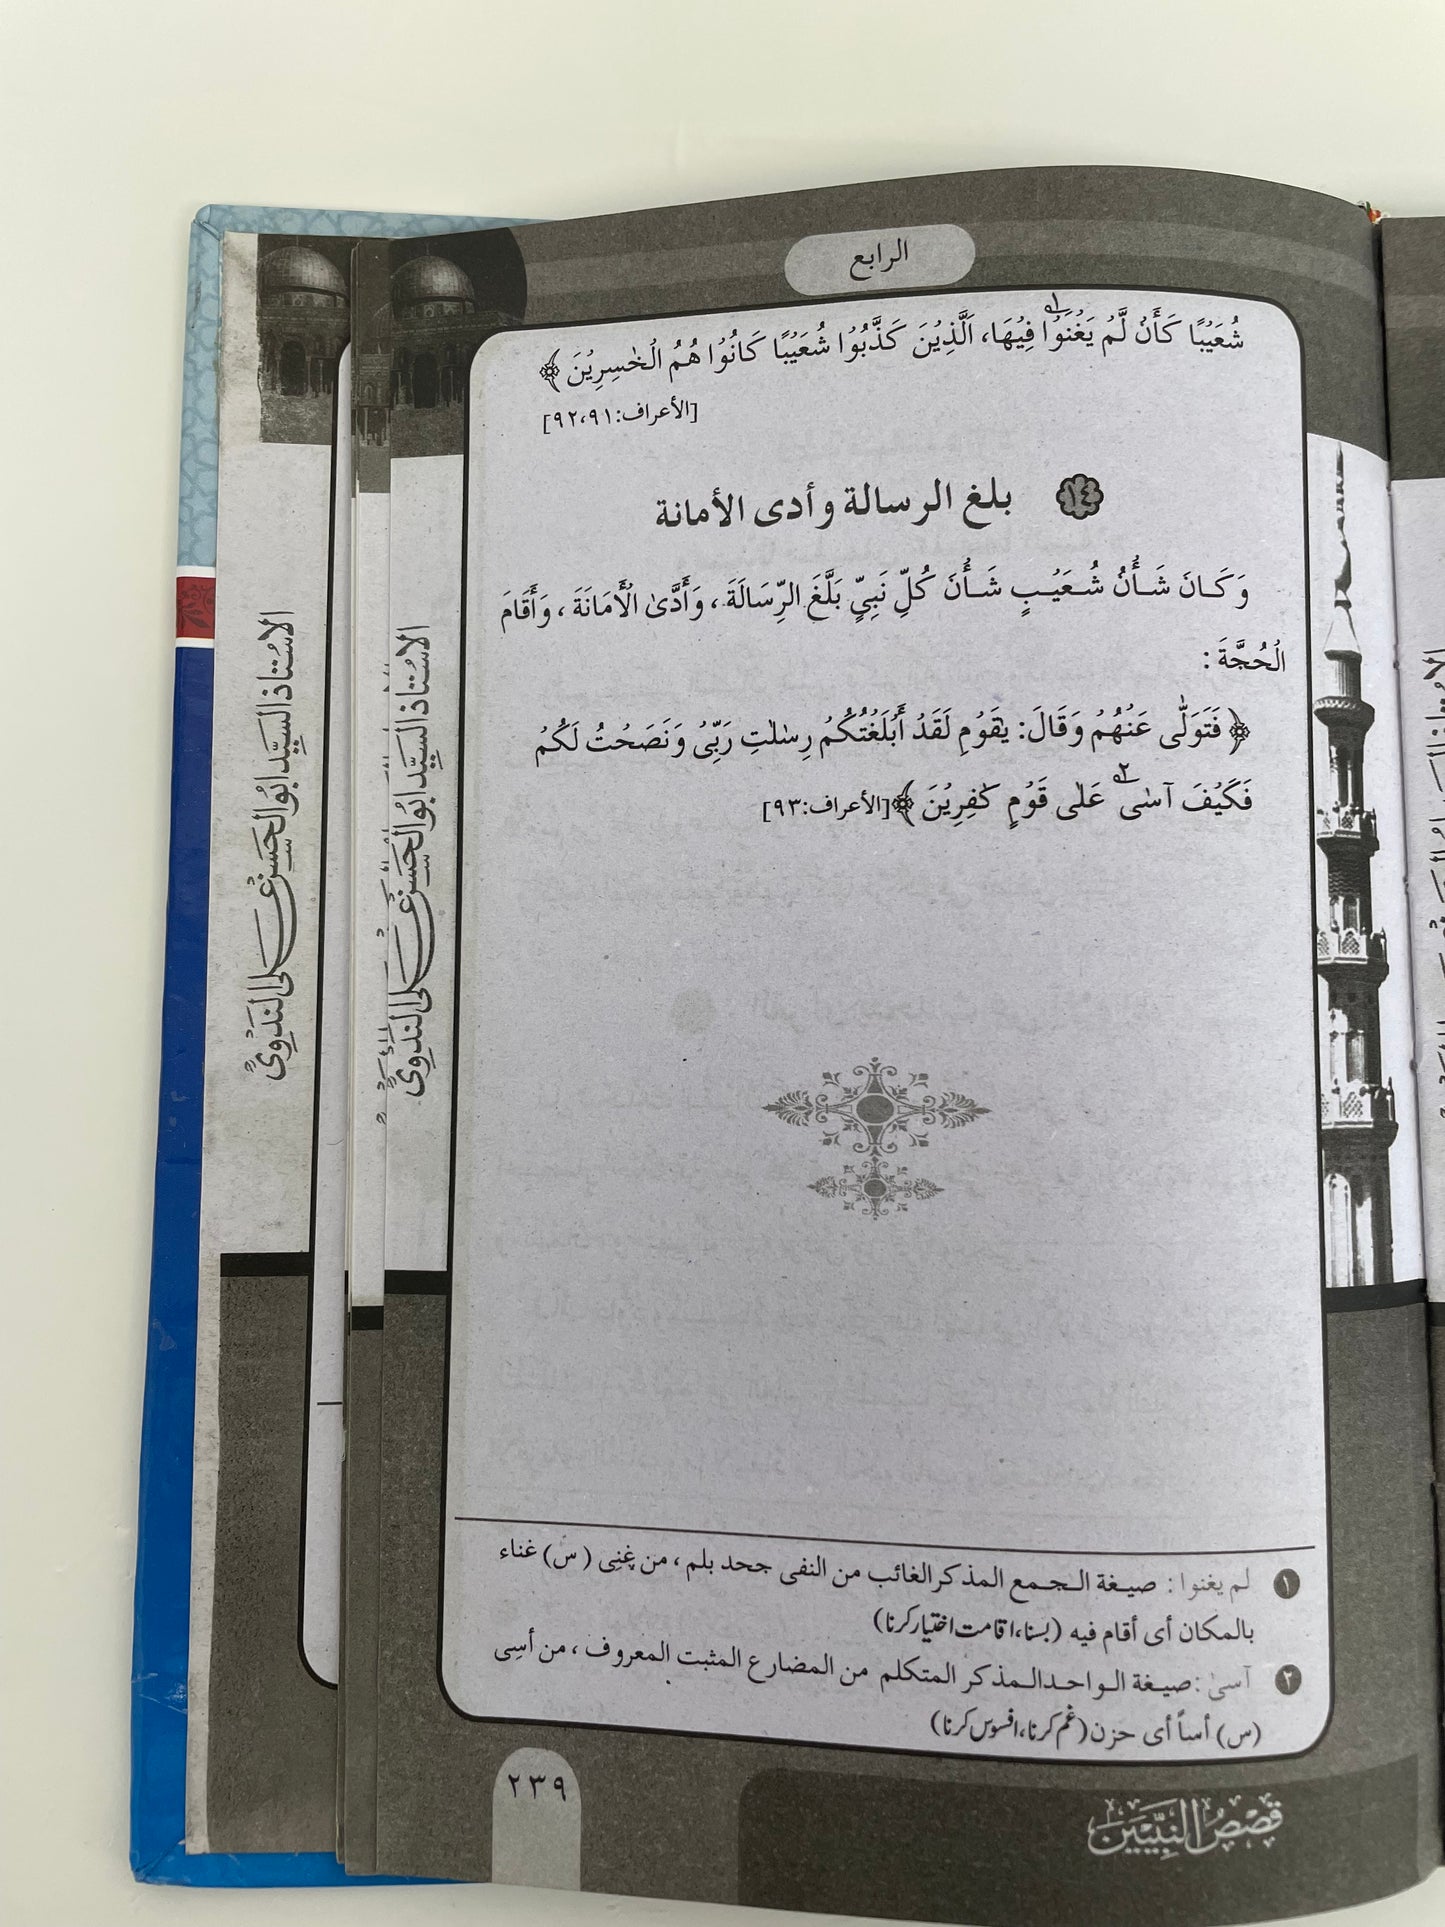 الرابع
شُعَيْبًا كَأَنْ لَّمْ يَغْنَوْا١ فِيْهَا، اَلَّذِيْنَ كَذَّبُوْا شُعَيْبًا كَانُوْا هُمُ الْخٰسِرِيْنَ ﴾
[الأعراف:٩٢،٩١]
١٤ بلغ الرسالة وأدى الأمانة
وَكَانَ شَأْنُ شُعَيْبٍ شَأْنَ كُلِّ نَبِيٍّ بَلَّغَ الرِّسَالَةَ، وَأَدَّىٰ الْأَمَانَةَ، وَأَقَامَ
الْحُجَّةَ:
﴿ فَتَوَلّٰى عَنْهُمْ وَقَالَ: يٰقَوْمِ لَقَدْ أَبْلَغْتُكُمْ رِسٰلٰتِ رَبِّيْ وَنَصَحْتُ لَكُمْ
فَكَيْفَ آسٰى٢ عَلٰى قَوْمٍ كٰفِرِيْنَ ﴾[الأعراف:٩٣]
١ لم يغنوا: صيغة الجمع المذكر الغائب من النفى جحد بلم، من غنِى (س) غناء
بالمكان أى أقام فيه (بسنا، اقامت اختیار کرنا)
٢ آسىٰ: صيغة الواحد المذكر المتكلم من المضارع المثبت المعروف، من أسِى
(س) أساً أى حزن (غم کرنا، افسوس کرنا)
٢٣٩
قَصَصُ النَّبِيِّيْنَ
الاُستاذ السَيِّد ابُو الحَسَن عَلى النَدْوِىُّ
الاُستاذ السَيِّد ابُو الحَسَن عَلى النَدْوِىُّ